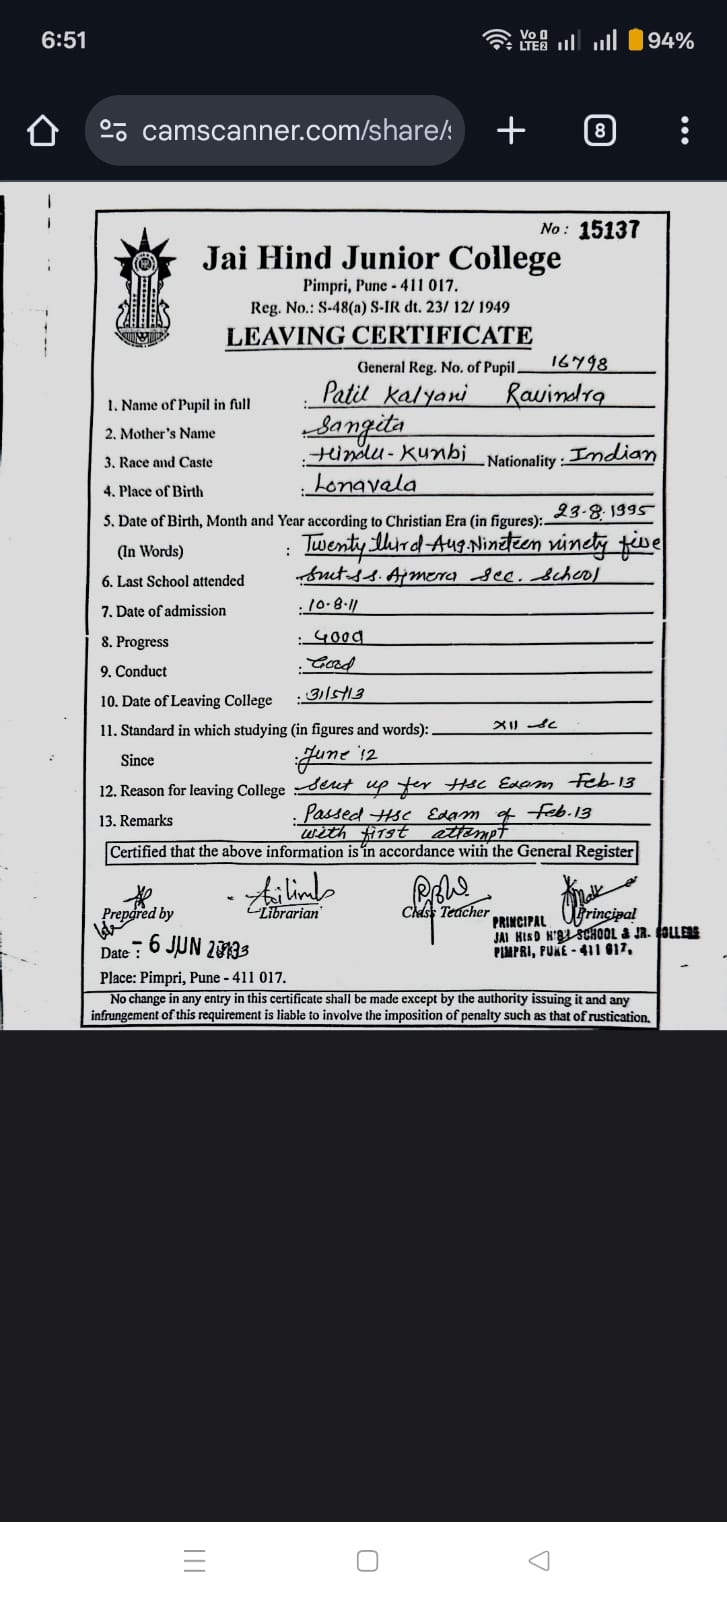 6:51
Vo LTE2 94%
camscanner.com/share/s
8
No: 15137
Jai Hind Junior College
Pimpri, Pune - 411 017.
Reg. No.: S-48(a) S-IR dt. 23/ 12/ 1949
LEAVING CERTIFICATE
General Reg. No. of Pupil 16798
1. Name of Pupil in full : Patil Kalyani Ravindra
2. Mother's Name : Sangita
3. Race and Caste : Hindu - Kunbi Nationality : Indian
4. Place of Birth : Lonavala
5. Date of Birth, Month and Year according to Christian Era (in figures): 23-8.1995
(In Words) : Twenty third Aug. Nineteen ninety five
6. Last School attended : Smt S.S. Ajmera Sec. School
7. Date of admission : 10-8-11
8. Progress : Good
9. Conduct : Good
10. Date of Leaving College : 31/5/13
11. Standard in which studying (in figures and words): XII Sc
Since : June '12
12. Reason for leaving College : Sent up for HSC Exam Feb-13
13. Remarks : Passed HSC Exam of Feb.13
with first attempt
Certified that the above information is in accordance with the General Register
Prepared by Librarian Class Teacher Principal
PRINCIPAL
JAI HIND H'GH SCHOOL & JR. COLLEGE
PIMPRI, PUNE - 411 017.
Date : - 6 JUN 2013
Place: Pimpri, Pune - 411 017.
No change in any entry in this certificate shall be made except by the authority issuing it and any
infrungement of this requirement is liable to involve the imposition of penalty such as that of rustication.